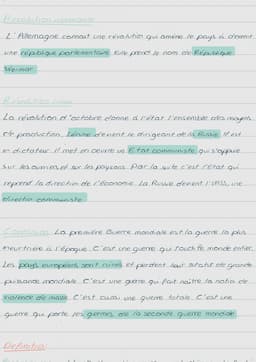 Révolution allemande
L'Allemagne connait une révolution qui amène le pays à devenir
une république parlementaire. Elle prend le nom de République
Weimar.
Révolution russe
La révolution d'octobre donne à l'état l'ensemble des moyens
de production. Lénine devient le dirigeant de la Russie. Il est
un dictateur. Il met en oeuvre un Etat communiste qui s'appuie
sur les ouvriers et sur les paysans. Par la suite c'est l'état qui
reprend la direction de l'économie. La Russie devient l'URSS, une
communiste
Conclusion La première Guerre mondiale est la guerre la plus
meurtrière à l'époque. C'est une guerre qui touche le monde entier.
Les pays européens sont ruinés et perdent leur statut de grande
puissance mondiale. C'est une guerre qui fait naître la notion de
violence de masse. C'est aussi une guerre totale. C'est une
guerre qui porte les germes de la seconde guerre mondiale.